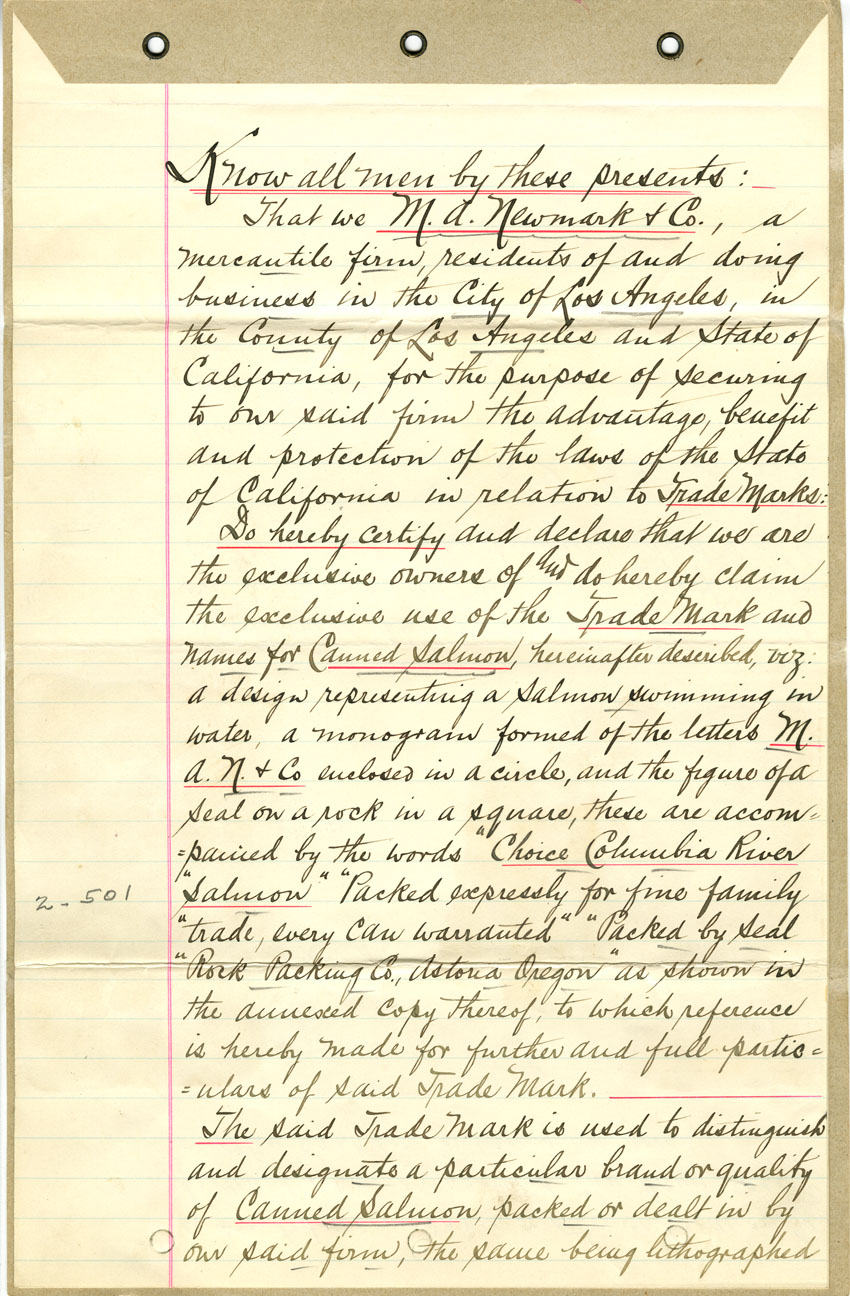 Know all men by these presents:
That we M. A. Newmark & Co., a
mercantile firm, residents of and doing
business in the City of Los Angeles, in
the County of Los Angeles and State of
California, for the purpose of securing
to our said firm the advantage, benefit
and protection of the laws of the State
of California in relation to Trade Marks:
Do hereby certify and declare that we are
the exclusive owners of and do hereby claim
the exclusive use of the Trade Mark and
names for Canned Salmon, hereinafter described, viz:
a design representing a Salmon swimming in
water, a monogram formed of the letters M.
A. N. & Co enclosed in a circle, and the figure of a
Seal on a rock in a square, these are accom=
=panied by the words "Choice Columbia River
"Salmon" "Packed expressly for fine family
"trade, every can warranted" "Packed by Seal
"Rock Packing Co., Astoria Oregon" as shown in
2-501
the annexed copy thereof, to which reference
is hereby made for further and full partic=
=ulars of said Trade Mark.
The said Trade Mark is used to distinguish
and designate a particular brand or quality
of Canned Salmon, packed or dealt in by
our said firm, the same being lithographed